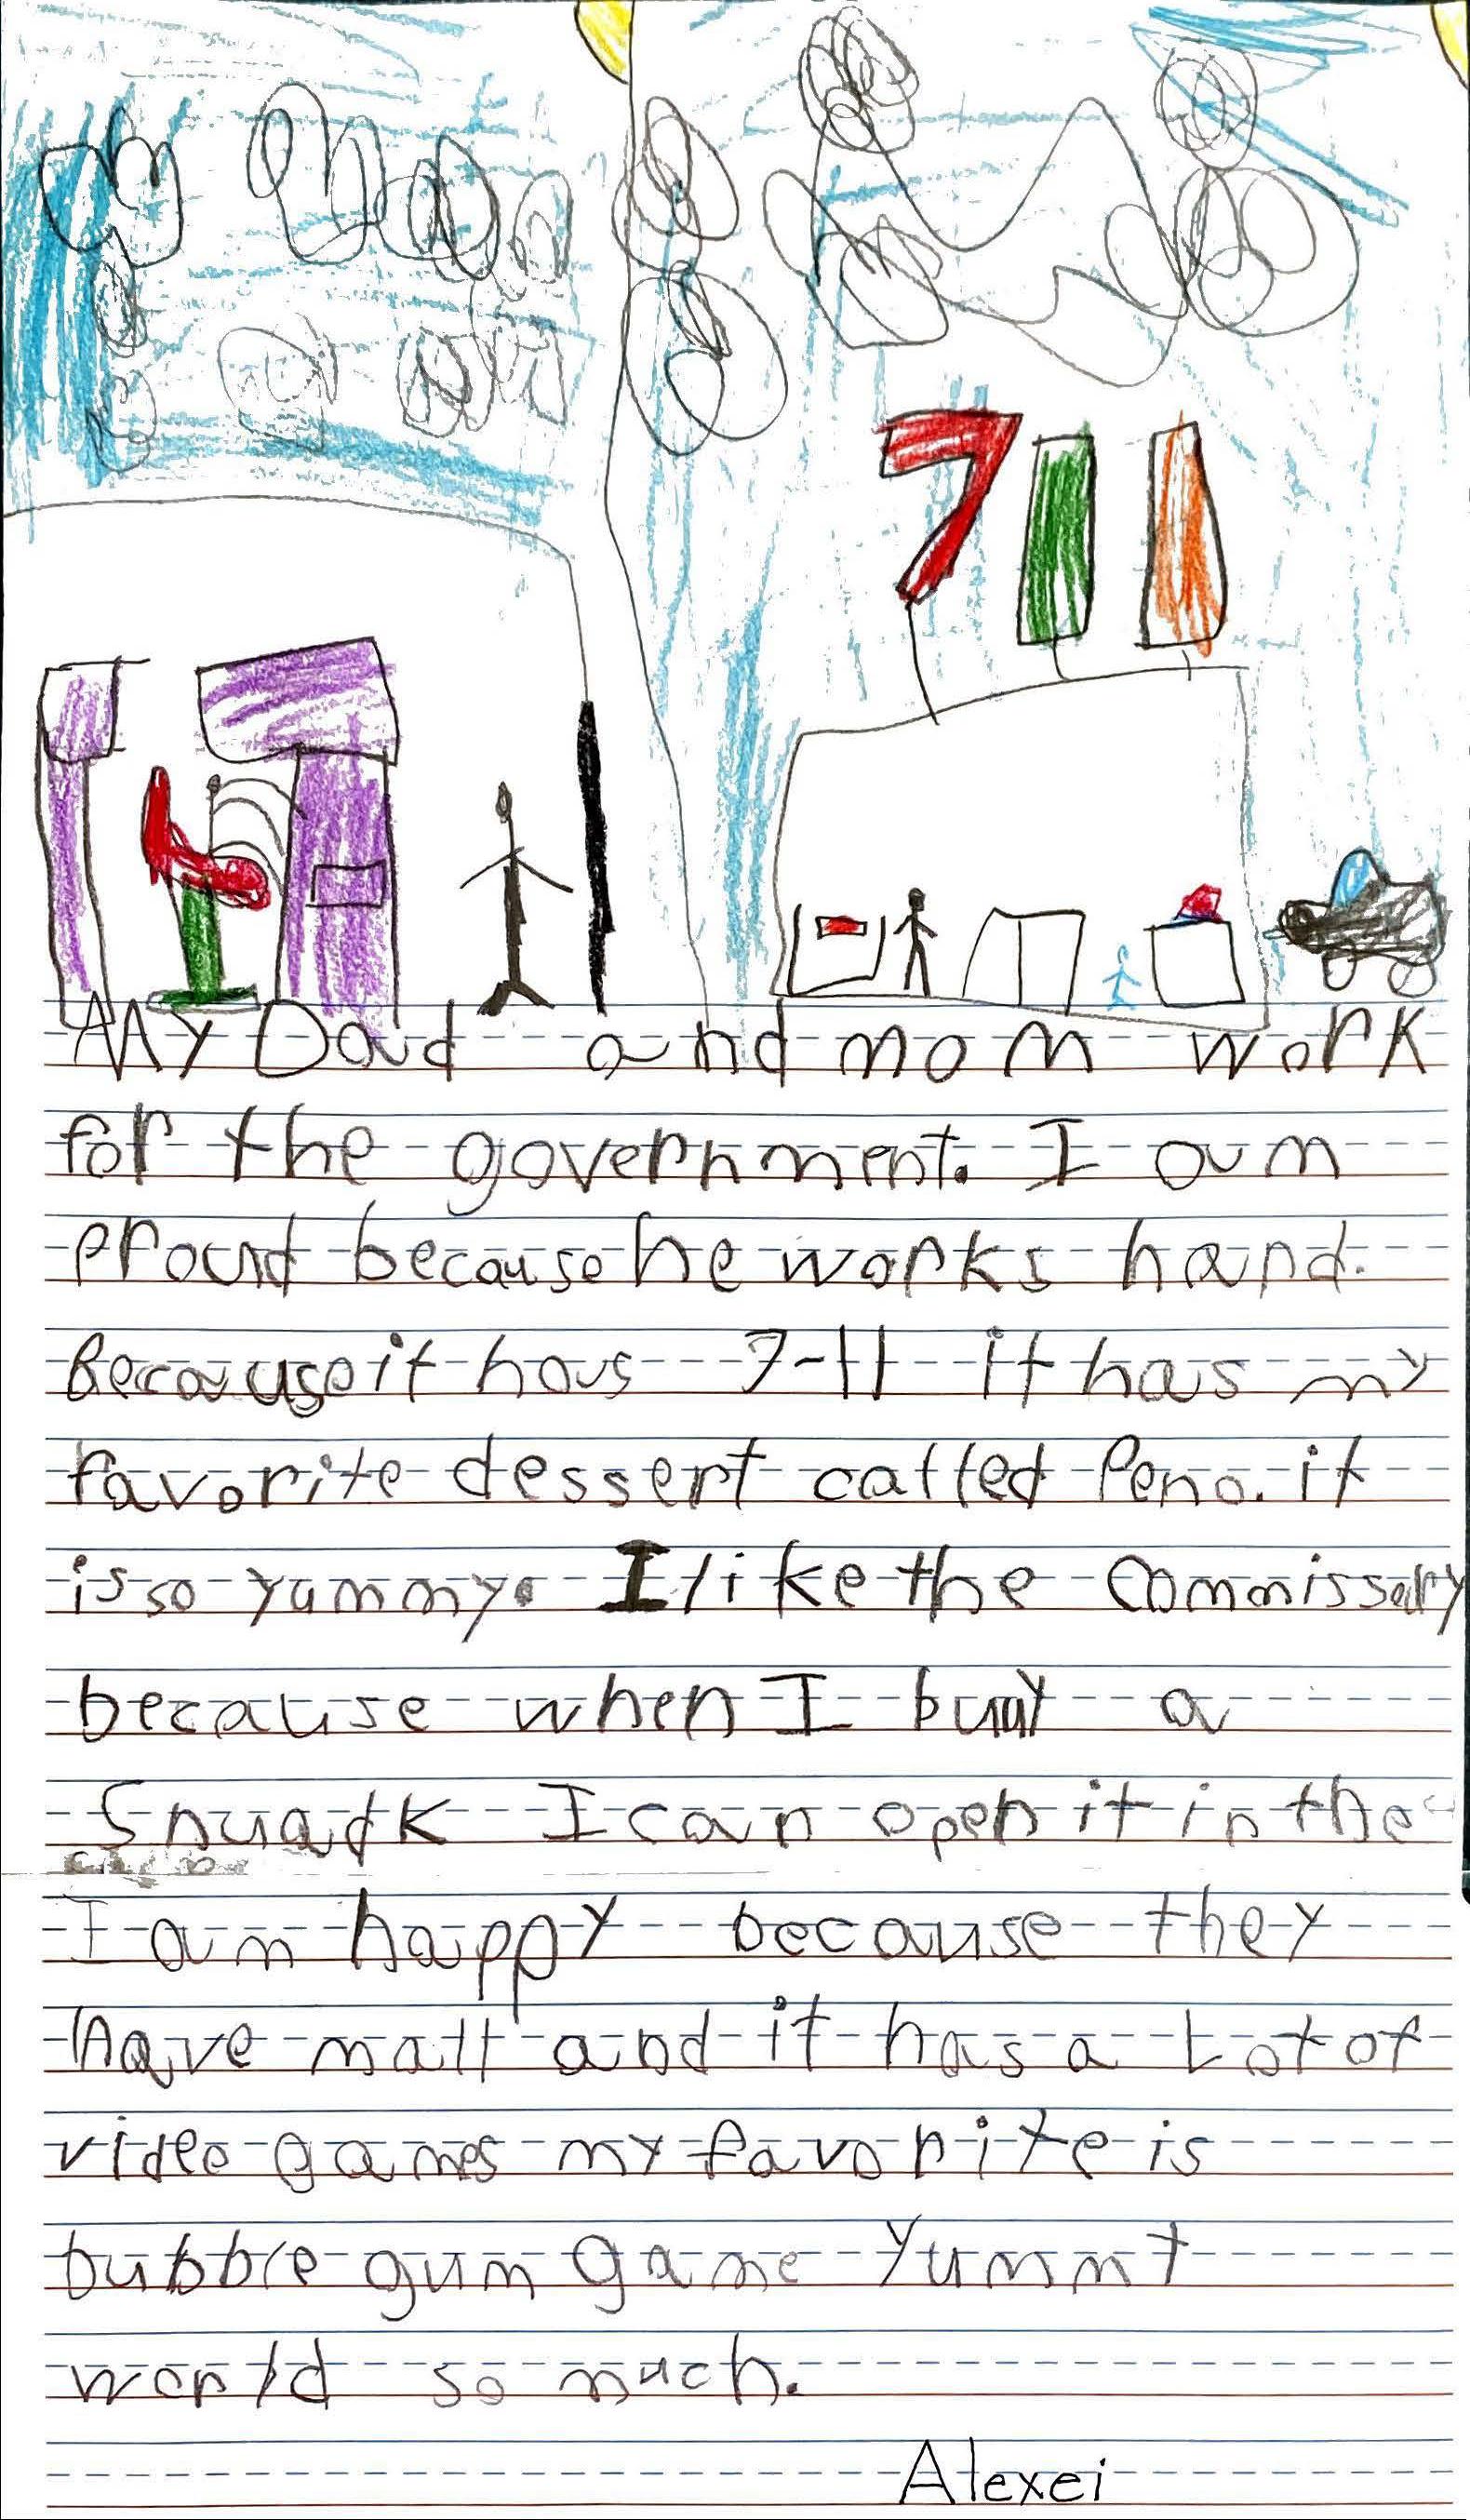 711
My Dad and mom work
for the government. I am
proud because he works hard.
Because it has 7-11 it has my
favorite dessert called Peno. it
is so yummy. I like the Commissary
because when I buy a
Snack I can open it in the
I am happy because they
have mall and it has a Lot of
video games my favorite is
bubble gum game Yummt
world so much.
Alexei